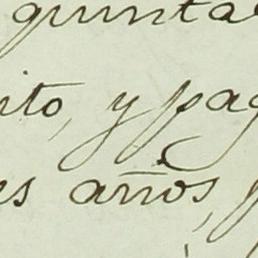 quinta
ito, y pag
es años,